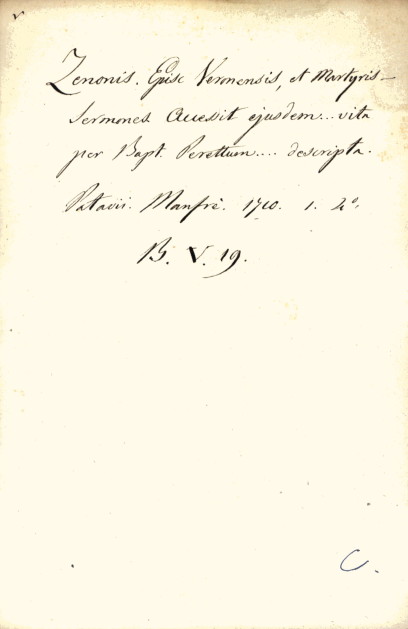 Zenonis. Episc Veronensis, et Martyris
Sermones Accessit ejusdem... vita
per Bapt. Perettum.... descripta.
Patavii. Manfrè. 1710. 1. 4º.
B. V. 19.
C.